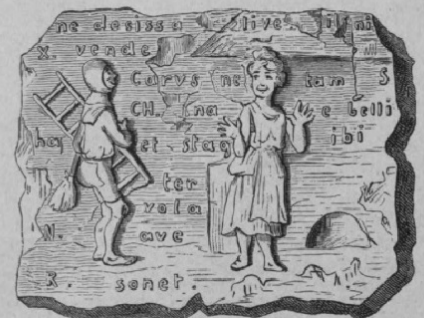 ne dosissa slive. il ni
X. vende
Corvs ne tam S
CH. na e belli
haj et stag ibi
ter
vola
N. ave
X. sonet.